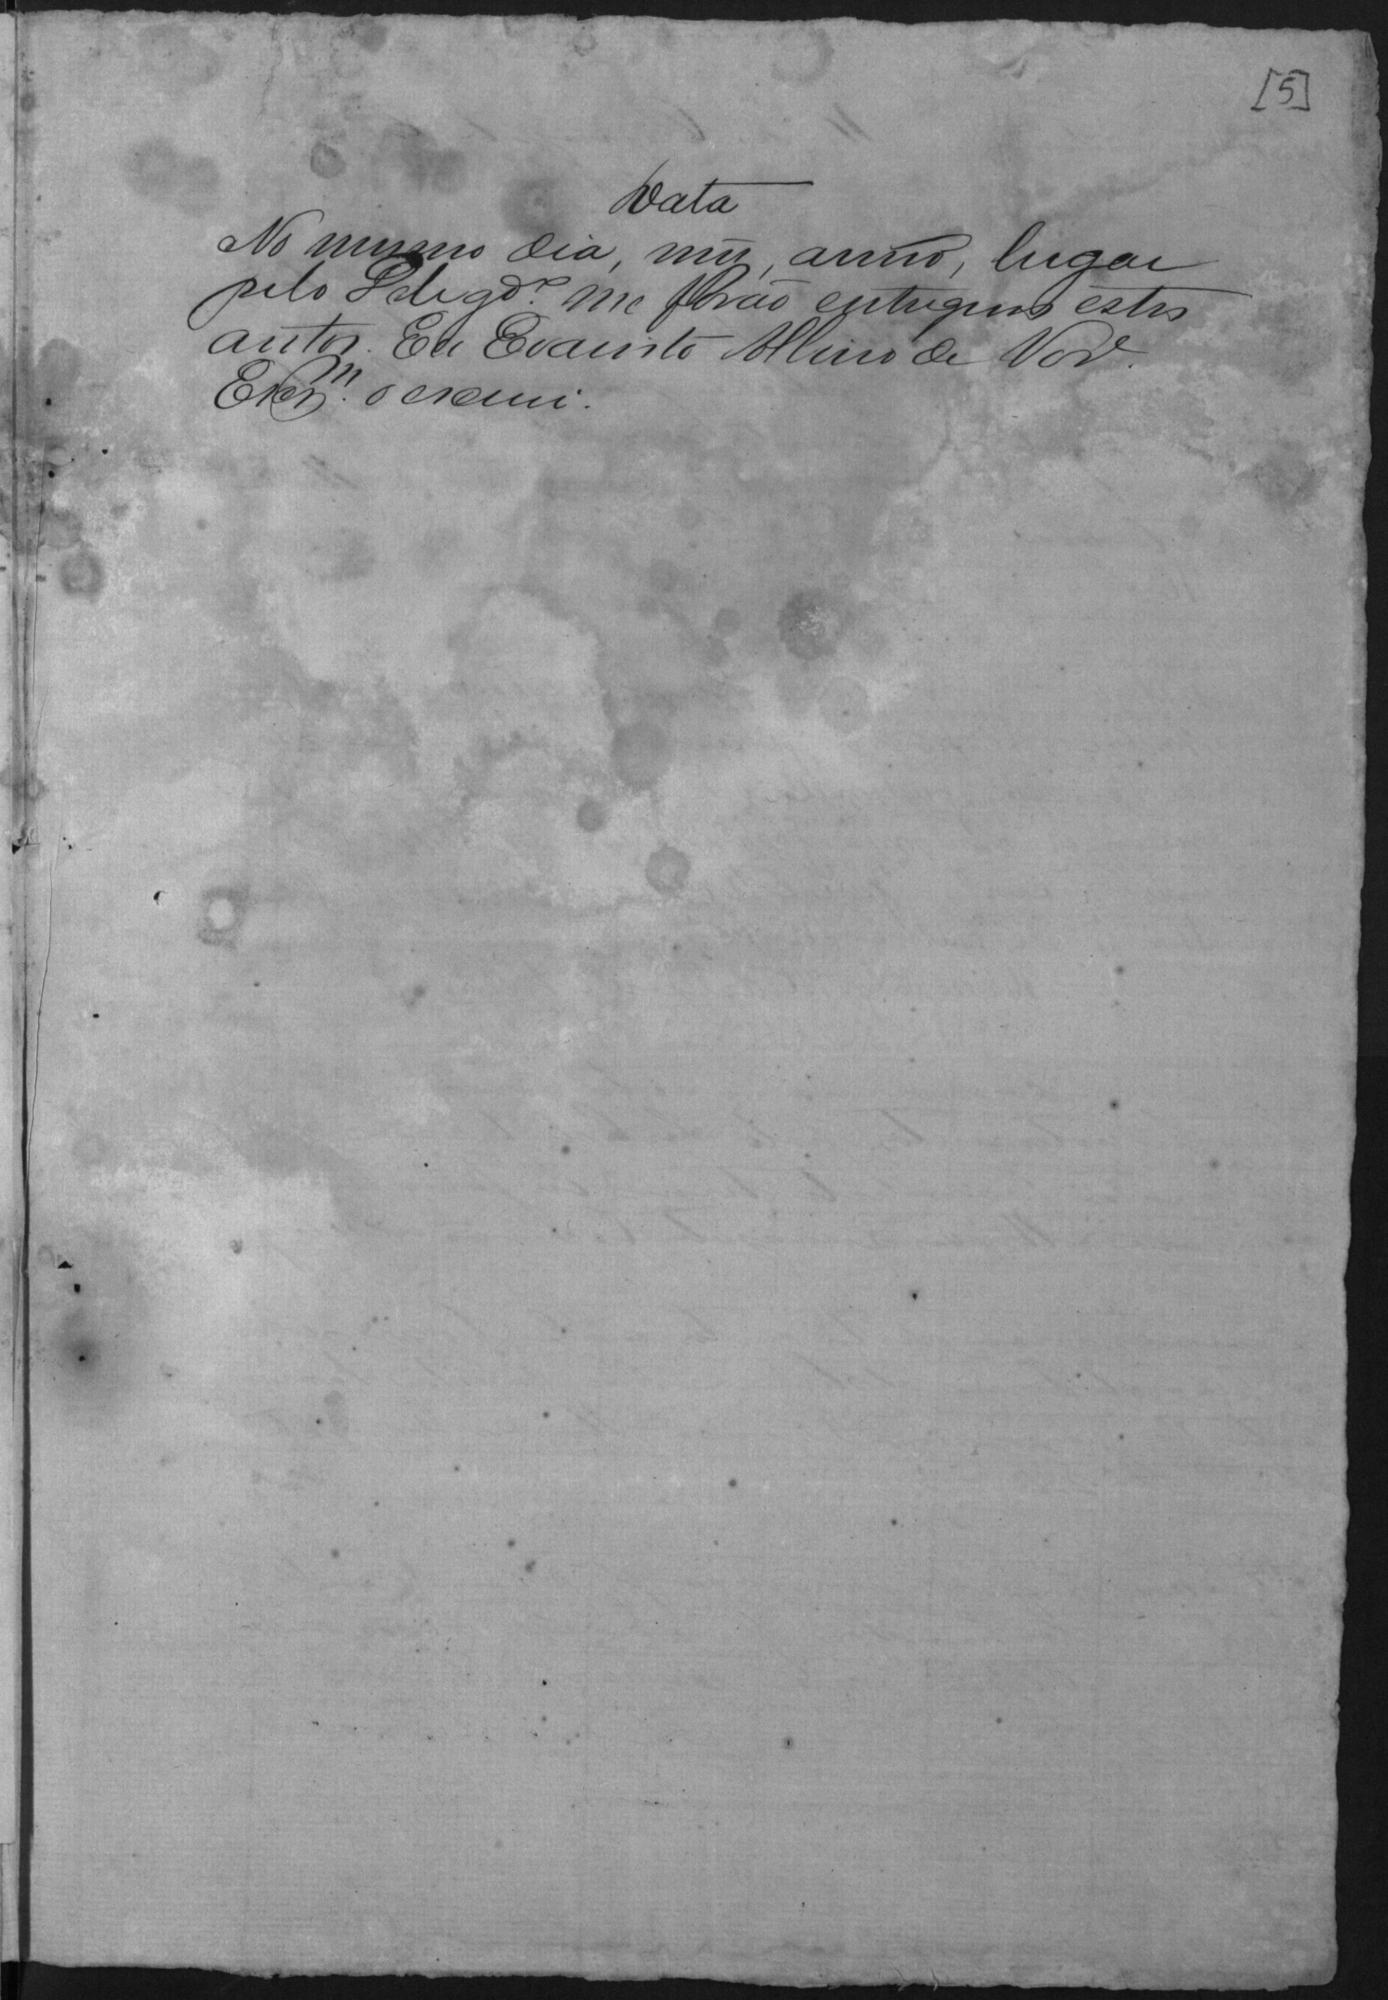 [5]
Data
No mesmo dia, mes, anno, lugar
pelo Sdelegd.º me forão entregues estes
autos. Eu Evaristo Albino de
Escr.m o escrevi.